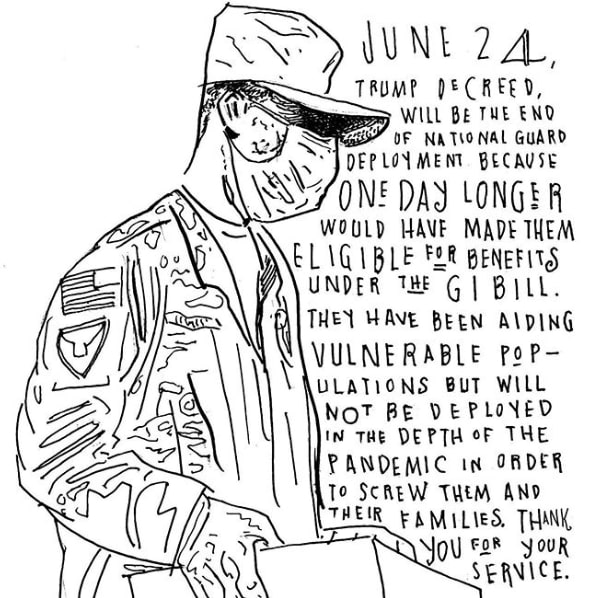 JUNE 24,
TRUMP DECREED,
WILL BE THE END
OF NATIONAL GUARD
DEPLOYMENT BECAUSE
ONE DAY LONGER
WOULD HAVE MADE THEM
ELIGIBLE FOR BENEFITS
UNDER THE GI BILL.
THEY HAVE BEEN AIDING
VULNERABLE POP-
ULATIONS BUT WILL
NOT BE DEPLOYED
IN THE DEPTH OF THE
PANDEMIC IN ORDER
TO SCREW THEM AND
THEIR FAMILIES. THANK
YOU FOR YOUR
SERVICE.